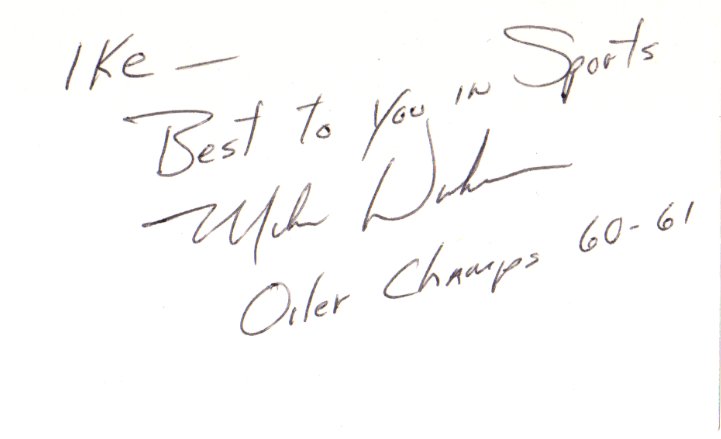 IKe —
Best to You IN Sports
Mike
Oiler Champs 60-61